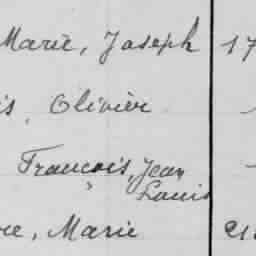 Marie, Joseph 17
is, Olivier
François, Jean
Louis
re, Marie 21